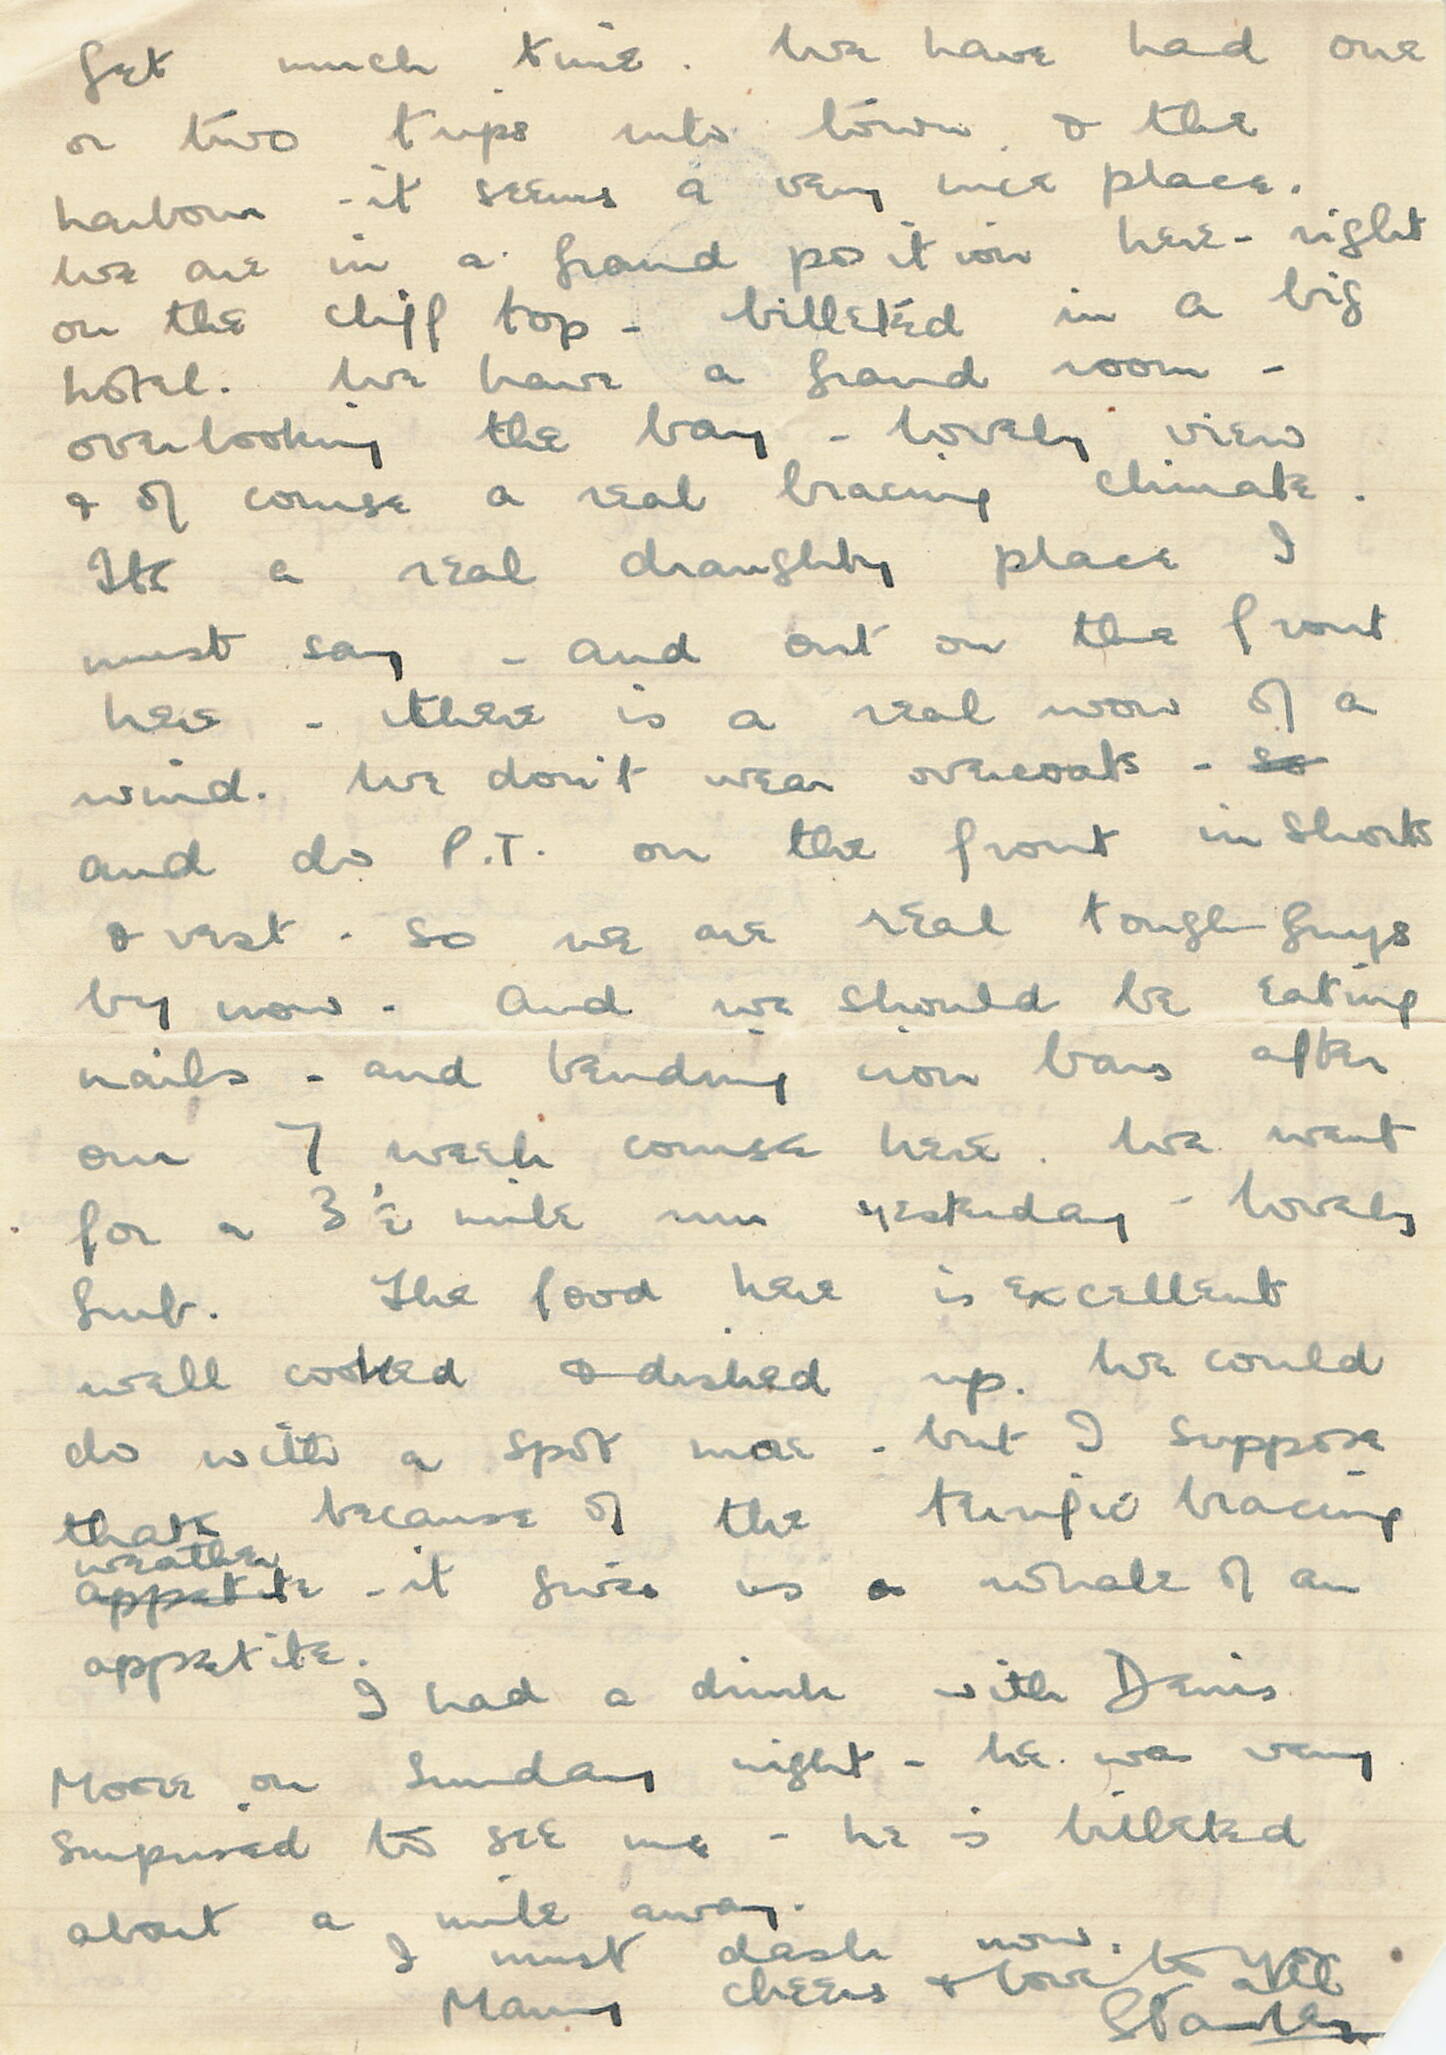 get much time. We have had one
or two trips into town & the
harbour - it seems a very nice place.
We are in a grand position here - right
on the cliff top - billeted in a big
hotel. We have a grand room -
overlooking the bay - lovely view
& of course a real bracing climate.
Its a real draughty place I
must say - and out on the front
here - there is a real wow of a
wind. We don't wear overcoats - so
and do P.T. on the front in shorts
& vest - so we are real tough guys
by now - and we should be eating
nails - and bending iron bars after
our 7 week course here. We went
for a 3½ mile run yesterday - lovely
grub. The food here is excellent
well cooked & dished up. We could
do with a spot more - but I suppose
thats because of the terrific bracing
weather
appetite - it gives us a whale of an
appetite.
I had a drink with Denis
Moore on Sunday night - he was very
surprised to see me - he is billeted
about a mile away.
I must dash now.
Many cheers & love to you all
Stanley